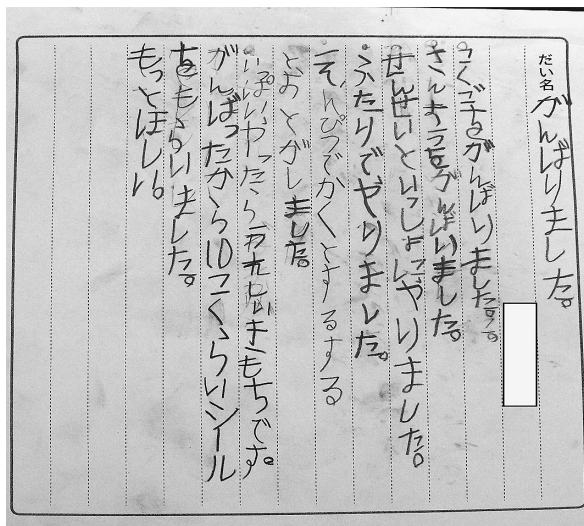 だい名 がんばりました。
こくごをがんばりました。
さんすうをがんばいました。
せんせいといっしょにやりました。
ふたりでやりました。
えんぴつでかくとするする
とおとがしました。
いっぱいやったらうれしいきもちです。
がんばったから10こくらいシール
をもらいました。
もっとほしい。